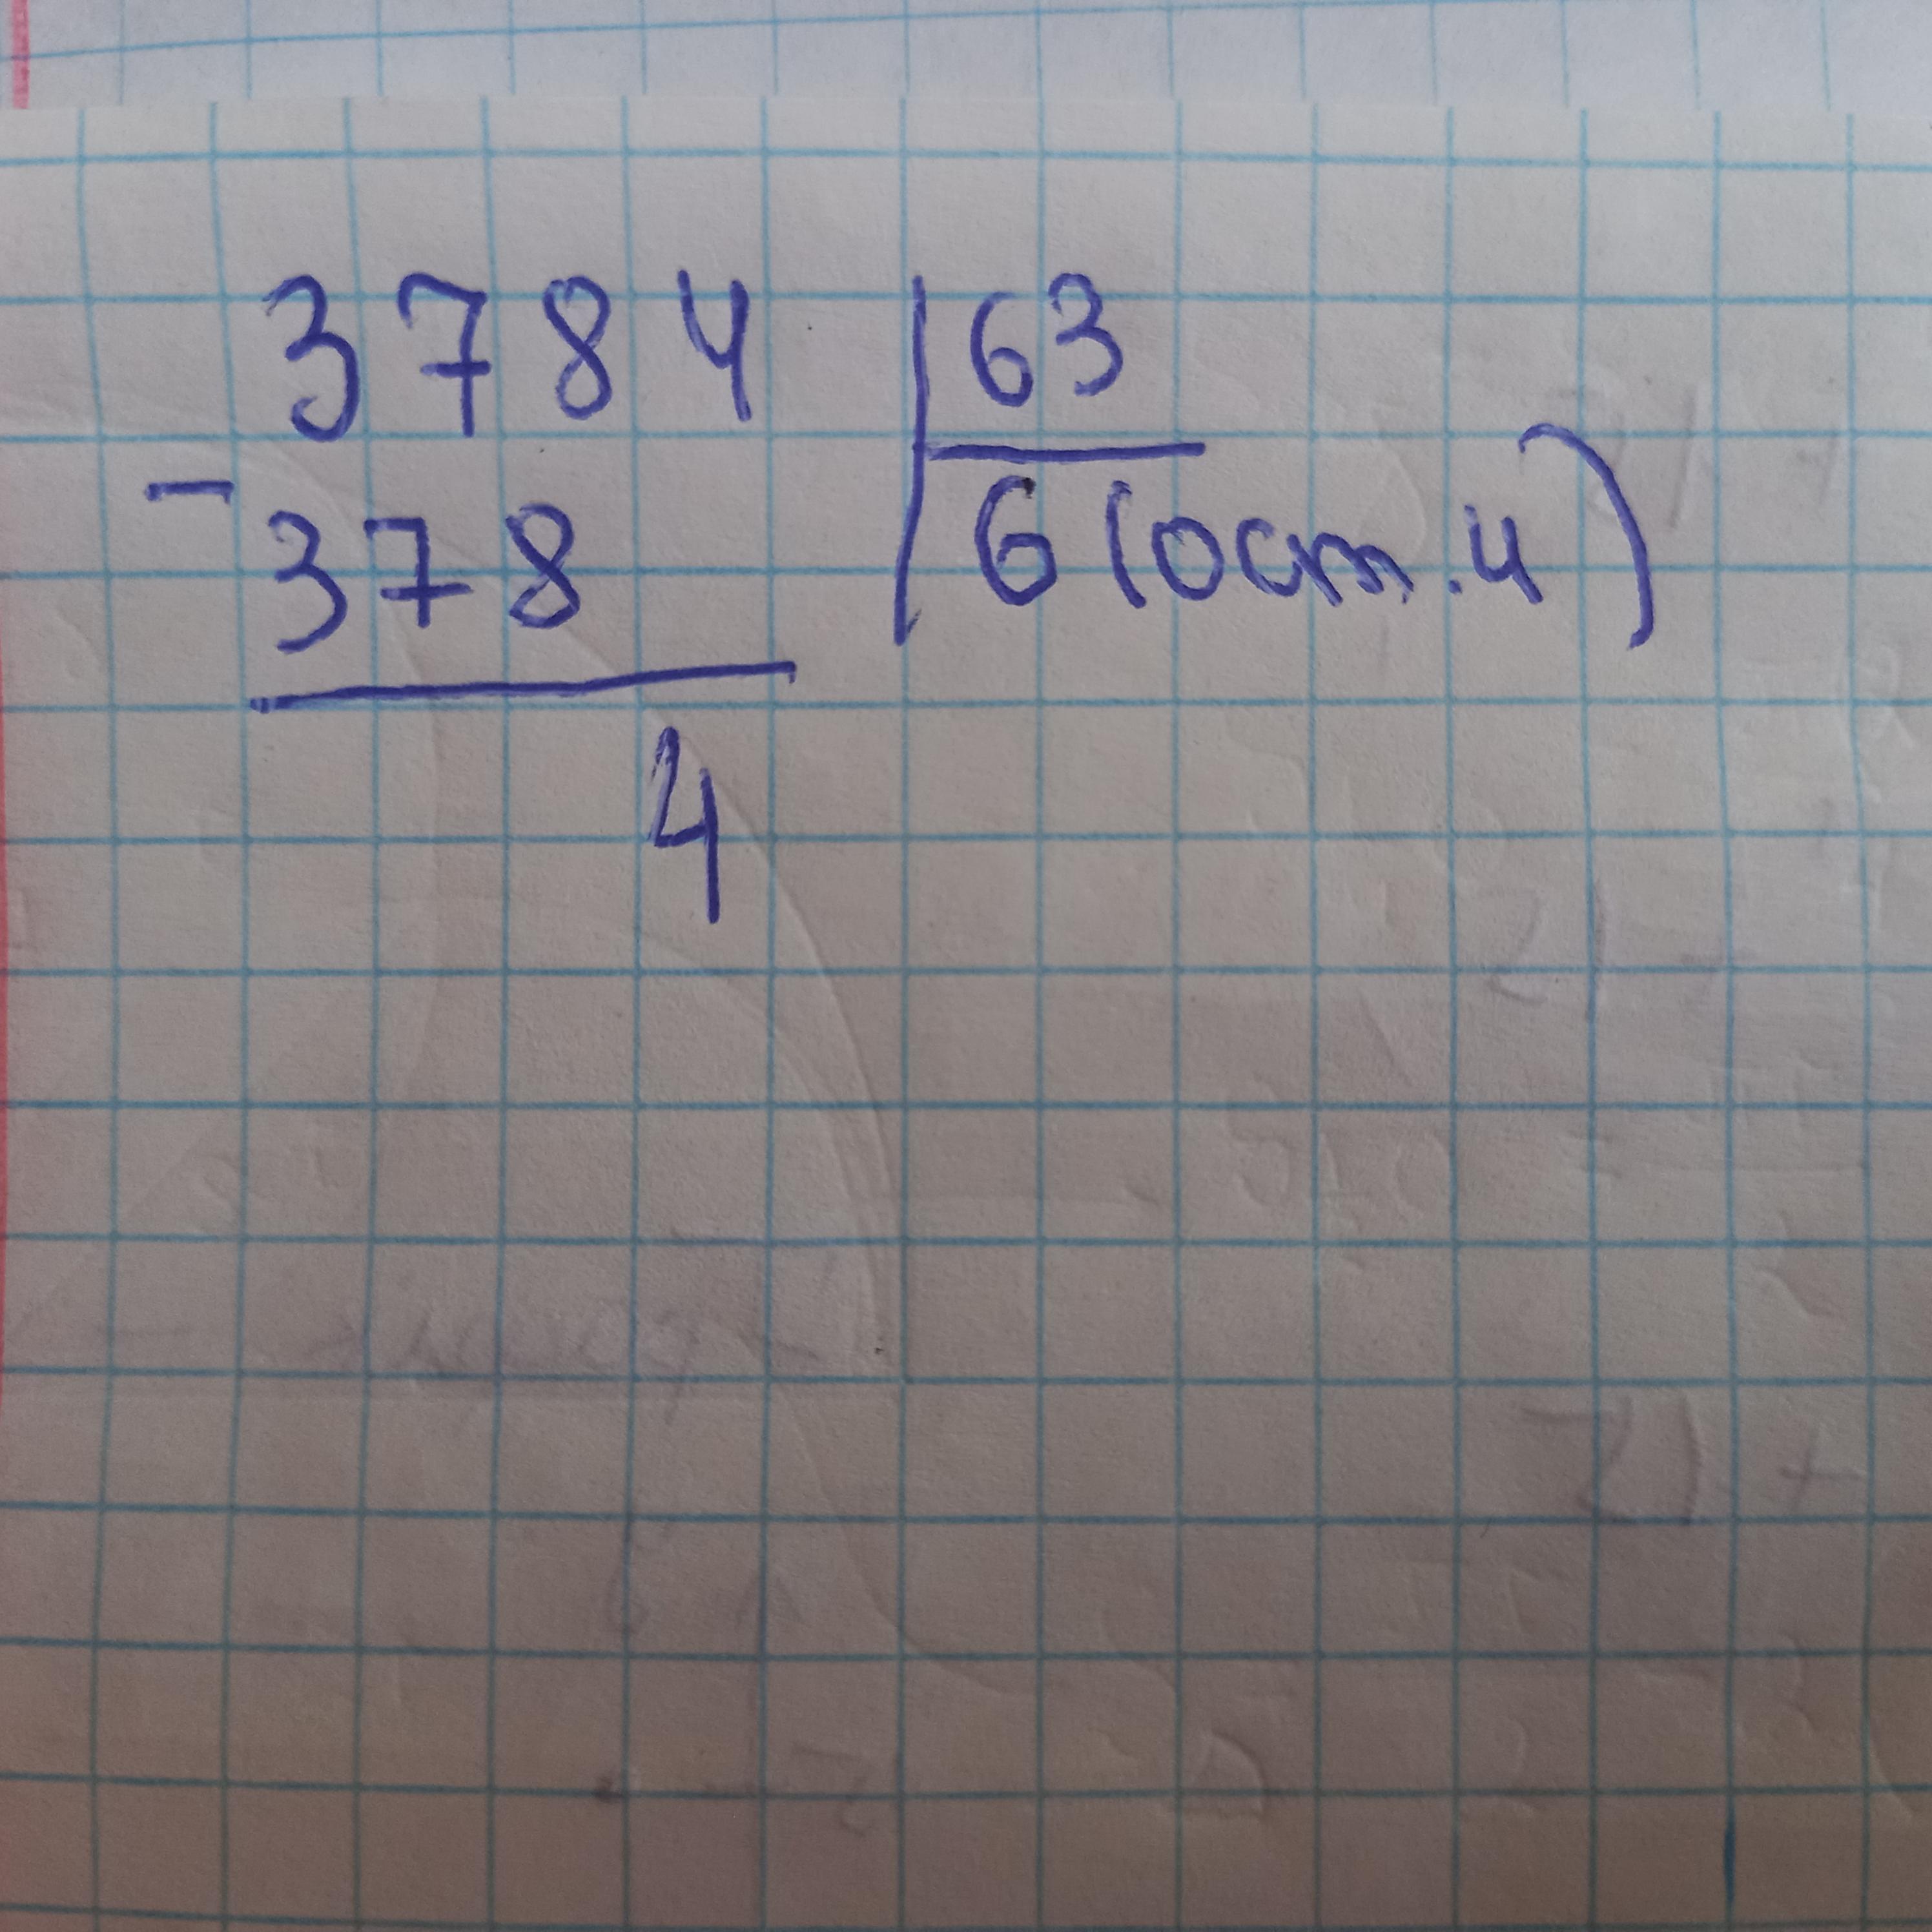 3784 63
- 378 6 (ост. 4)
4